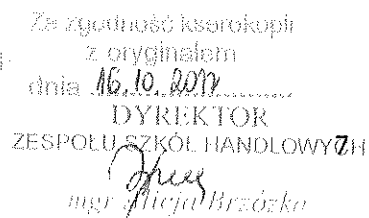 Za zgodność kserokopii
z oryginałem
dnia 16.10.2017
DYREKTOR
ZESPOŁU SZKÓŁ HANDLOWYCH
mgr Alicja Brzózka